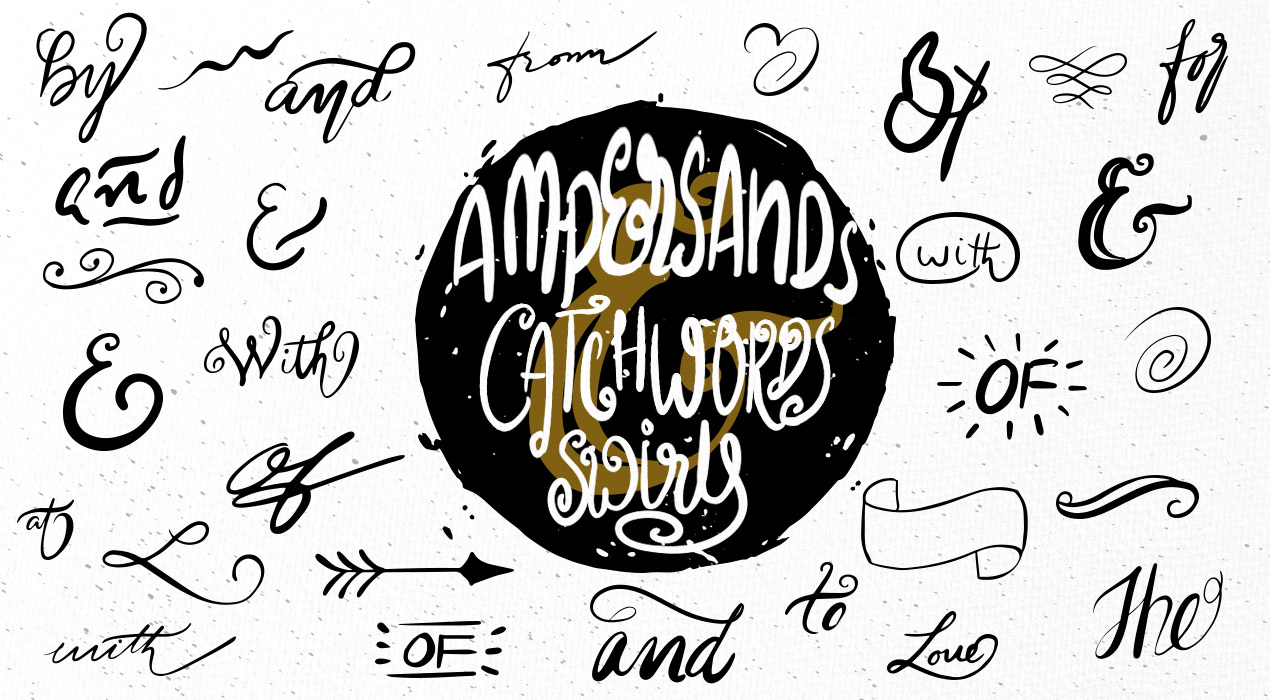 by
and
from
By
for
and
&
with
&
AMPERSANDS
CATCHWORDS
swirly
&
&
With
OF
of
at
with
OF
and
to
Love
The